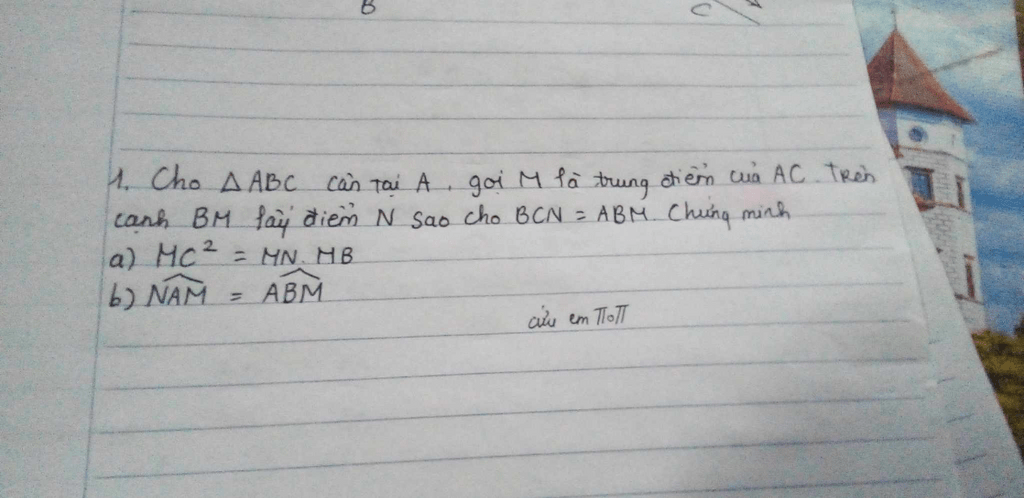 B C
1. Cho △ABC cân tại A, gọi M là trung điểm của AC. Trên
cạnh BM lấy điểm N sao cho BCN = ABM. Chứng minh
a) MC² = MN. MB
b) \widehat{NAM} = \widehat{ABM}
cứu em TToTT